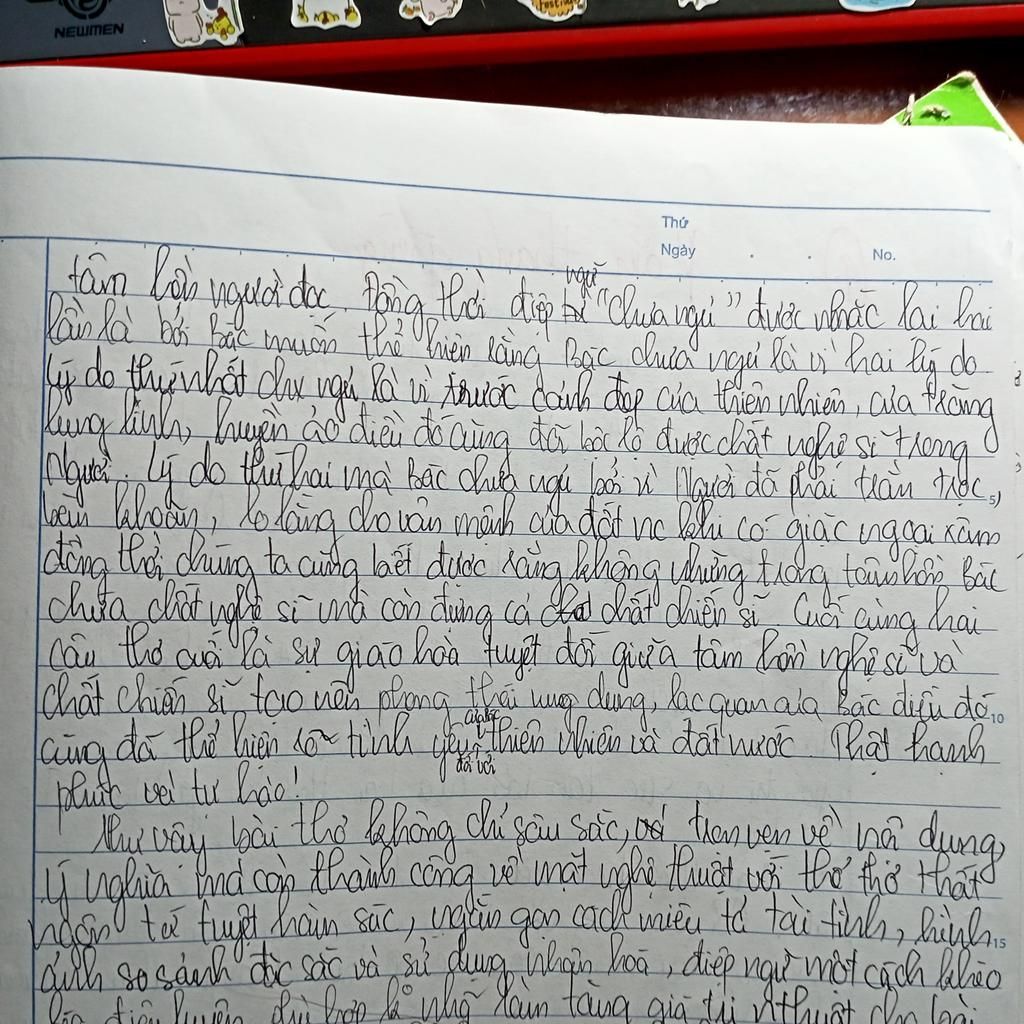 NEWMEN
Thứ
Ngày
No.
tâm hồn người đọc. Đồng thời điệp ngữ "Chưa ngủ" được nhắc lại hai
lần là bởi Bác muốn thể hiện rằng Bác chưa ngủ là vì hai lý do.
Lý do thứ nhất chư ngủ là vì trước cảnh đẹp của thiên nhiên, của trăng
lung linh, huyền ảo điều đó cũng đã bộc lộ được chất nghệ sĩ trong
Người. Lý do thứ hai mà Bác chưa ngủ bởi vì Người đã phải trằn trọc,
5
băn khoăn, lo lắng cho vận mệnh của đất nc khi có giặc ngoại xâm
đồng thời chúng ta cũng biết được rằng không những trong tâm hồn Bác
chứa chất nghệ sĩ mà còn đựng cả chất chiến sĩ. Cuối cùng hai
câu thơ cuối là sự giao hoà tuyệt đối giữa tâm hồn nghệ sĩ và
chất chiến sĩ tạo nên phong thái ung dung, lạc quan của Bác điều đó
10
cũng đã thể hiện rõ tình yêu của Bác đối với thiên nhiên và đất nước. Thật hạnh
phúc và tự hào!
Như vậy bài thơ không chỉ sâu sắc, trọn vẹn về nội dung,
ý nghĩa mà còn thành công về mặt nghệ thuật với thể thơ thất
ngôn tứ tuyệt hàm súc, ngắn gọn cách miêu tả tài tình, hình
15
ảnh so sánh đặc sắc và sử dụng nhân hoá, điệp ngữ một cách khéo